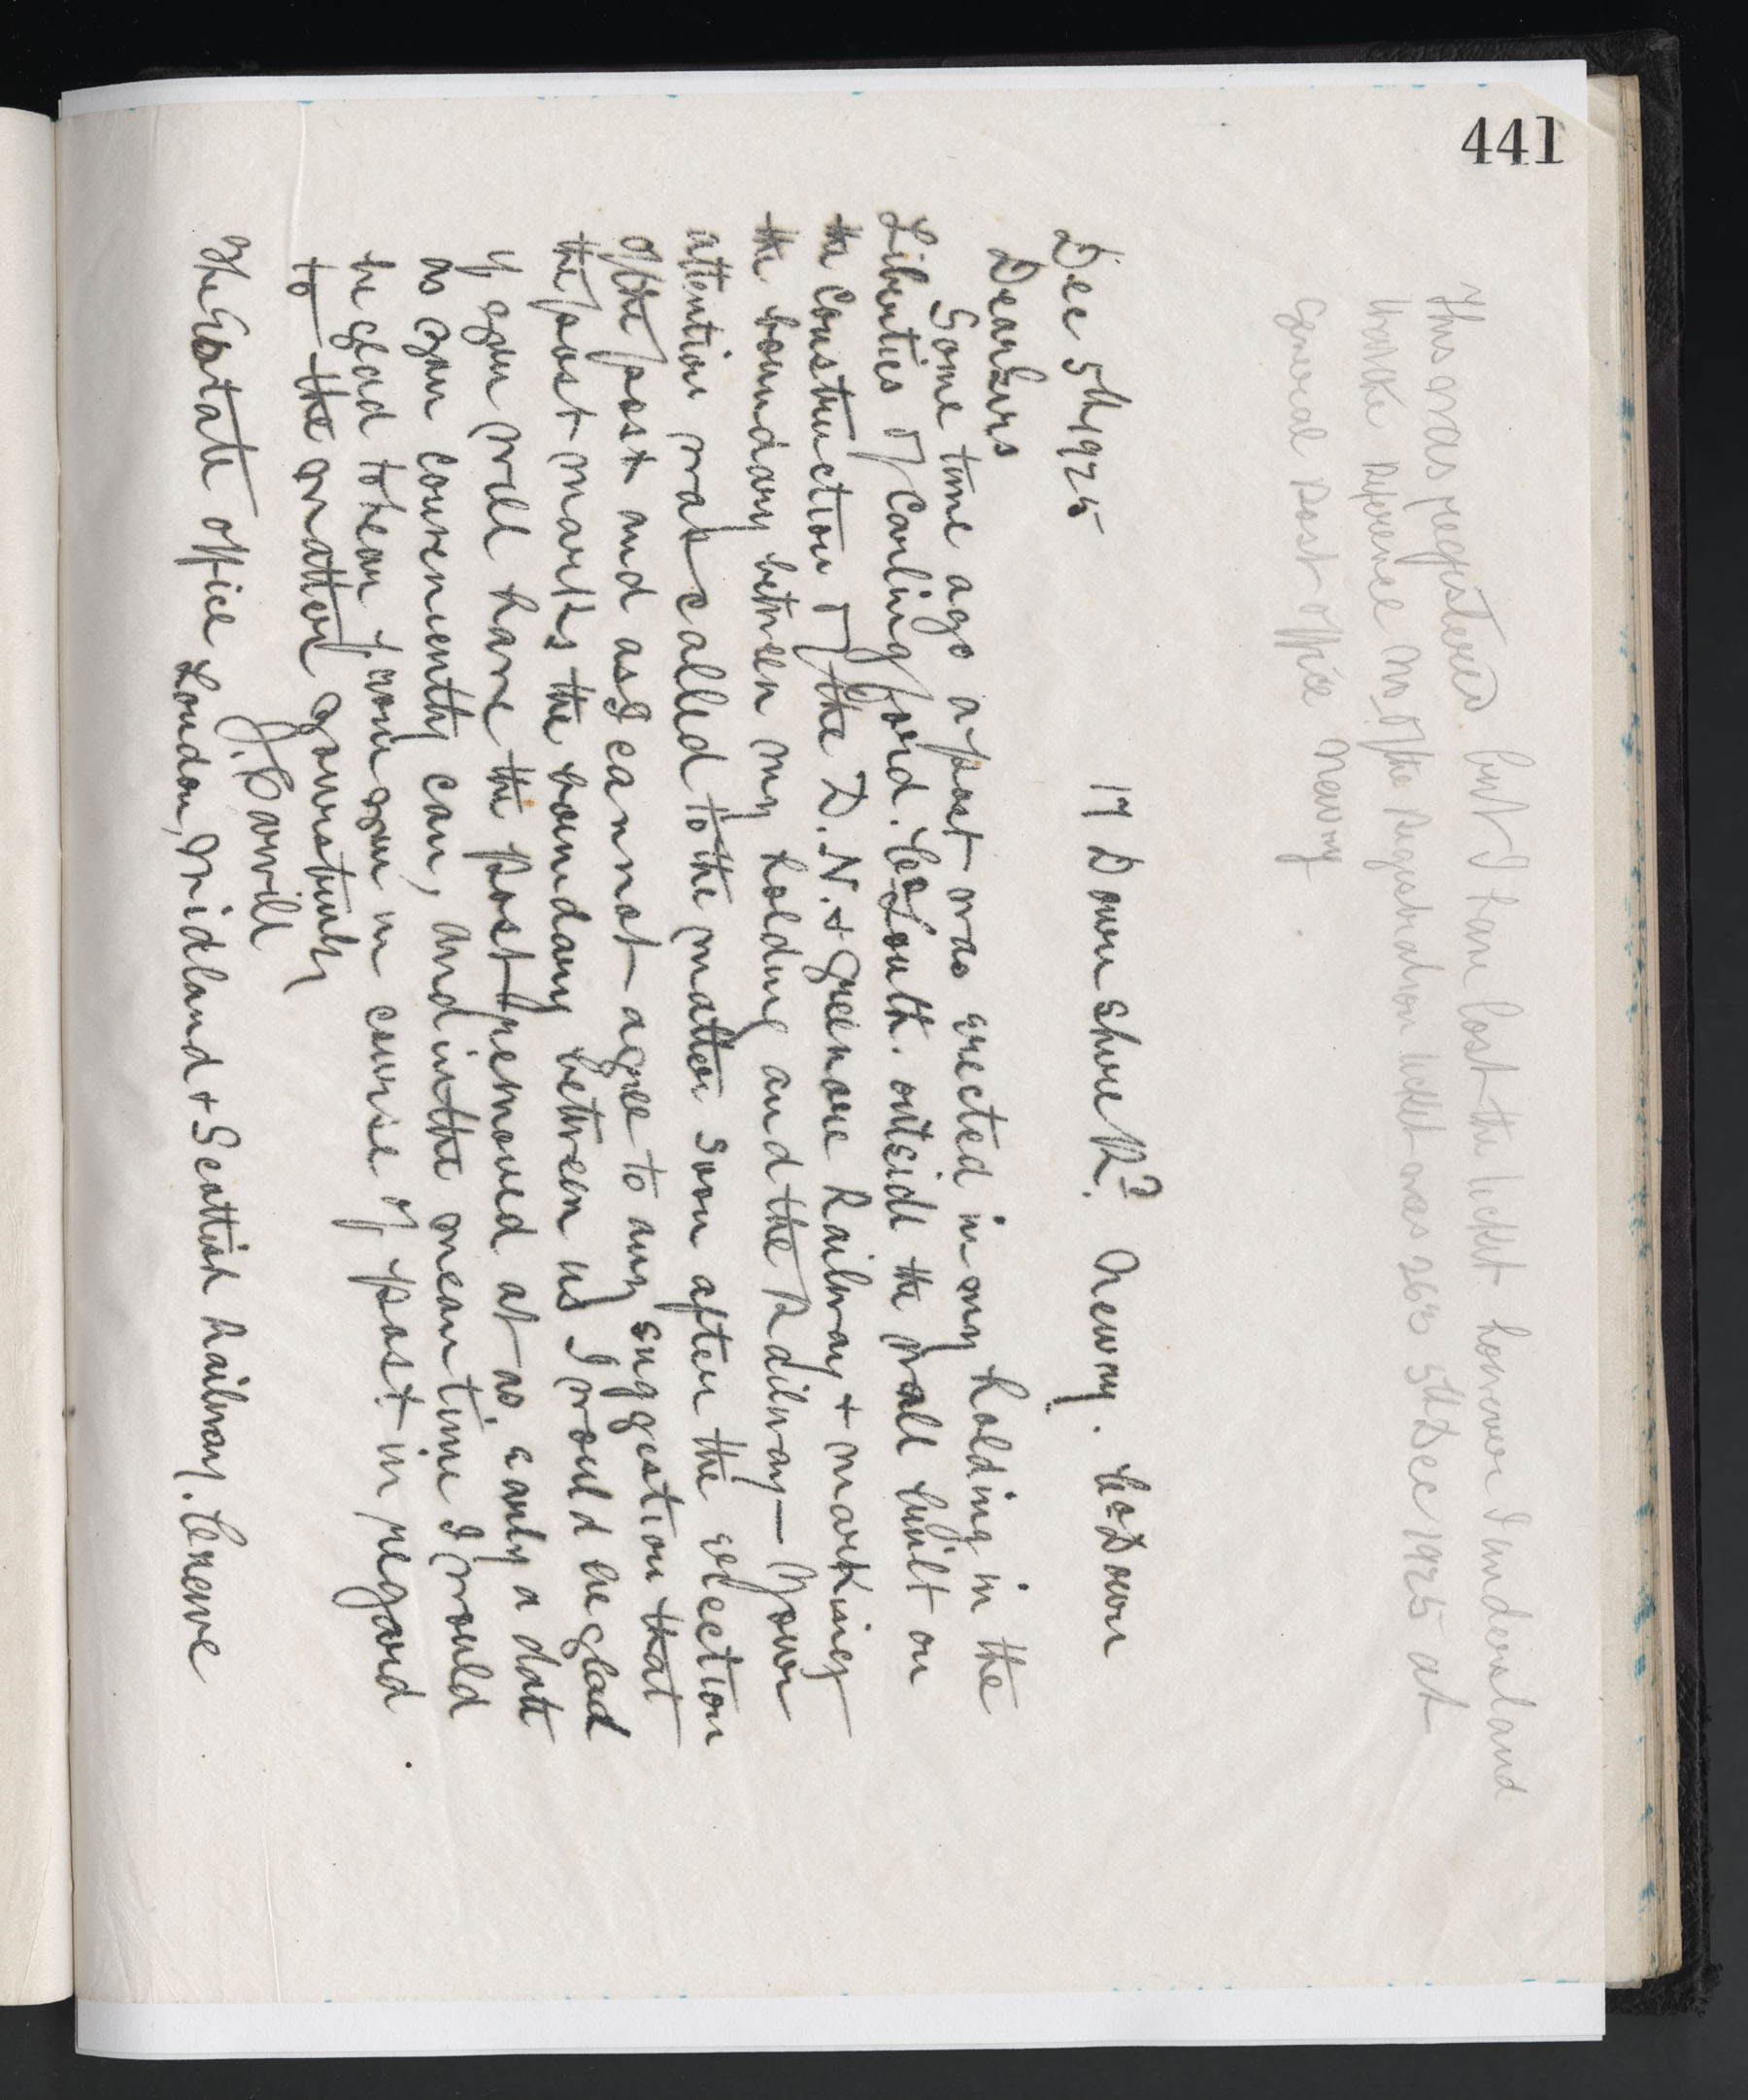 441
This was registered but I have lost the ticket however I understand
that the reference no. of the registration ticket was 263 5th Dec 1925 at
General Post office Newry
17 Downshire Rd. Newry. Co Down
Dec 5th 1925
Dear Sirs
Some time ago a post was erected in my holding in the
Liberties of Carlingford. Co Louth. outside the wall built on
the construction of the D. N. & Greenore Railway & marking
the boundary between my holding and the Railway — Your
attention was called to the matter soon after the erection
of the post and as I cannot agree to any suggestion that
the post marks the boundary between us I would be glad
if you will have the post removed at as early a date
as you conveniently can, and in the mean time I would
be glad to hear from you in course of post in regard
to the matter yours truly
J. Carvill
The Estate office London, Midland & Scottish Railway. Crewe